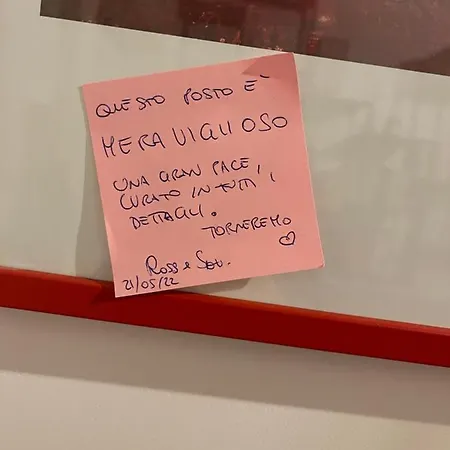 QUESTO POSTO E'
MERAVIGLIOSO
UNA GRAN PACE,
CURATO IN TUTTI I
DETTAGLI.
TORNEREMO
ROSS e
21/05/22